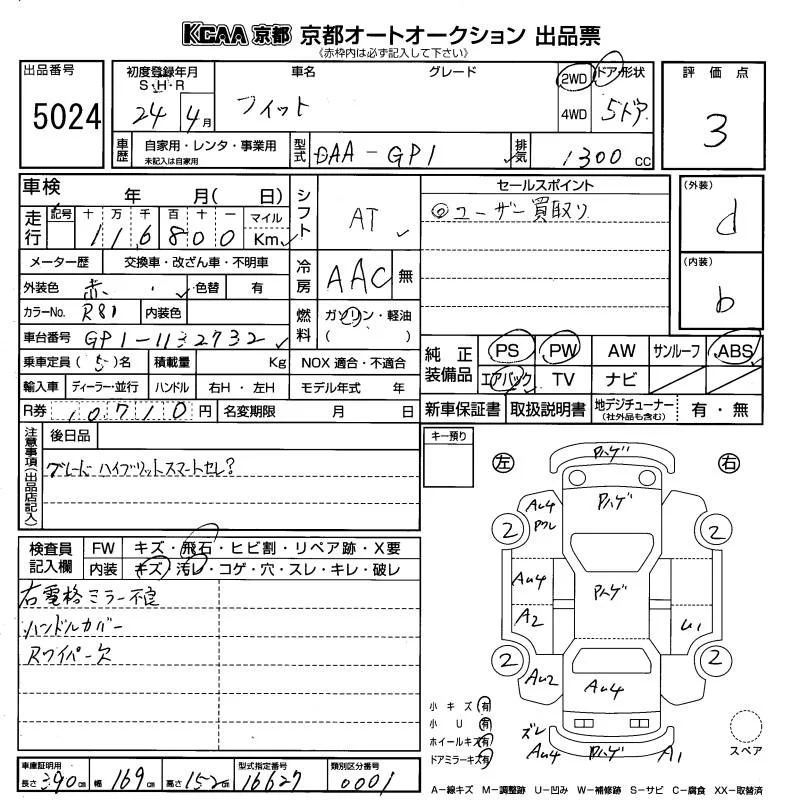 KCAA 京都 京都オートオークション 出品票
《赤枠内は必ず記入して下さい》
出品番号
5024
初度登録年月
S・H・R
24 4月
車名 グレード
フィット
2WD
4WD
ドア形状
5ドア
評価点
3
車歴
自家用・レンタ・事業用
未記入は自家用
型式
DAA-GP1
排気
1300 cc
車検 年 月( 日)
走行
記号 十 万 千 百 十 一 マイル
116800 Km
メーター歴 交換車・改ざん車・不明車
外装色 赤 色替 有
カラーNo. R81 内装色
車台番号 GP1-1132732
乗車定員 (5)名 積載量 Kg NOX 適合・不適合
輸入車 ディーラー・並行 ハンドル 右H・左H モデル年式 年
R券 10710円 名変期限 月 日
シフト
AT
冷房
AAC 無
燃料
ガソリン・軽油
( )
セールスポイント
◎ユーザー買取り
(外装)
d
(内装)
b
純正装備品
PS PW AW サンルーフ ABS
エアバック TV ナビ
新車保証書 取扱説明書 地デジチューナー (社外品も含む) 有・無
注意事項(出品店記入)
後日品
グレード ハイブリットスマートセレ?
キー預り
検査員記入欄
FW キズ・飛石・ヒビ割・リペア跡・X要
内装 キズ・汚レ・コゲ・穴・スレ・キレ・破レ
右電格ミラー不良
ハンドルカバー
Rワイパー欠
左 右
Pハゲ
Pハゲ
AU4
Pワレ
2 2
AU4
Pハゲ
A2
U1
2 2
AU2
AU4
小キズ 有
小U 有
ホイールキズ 有
ドアミラーキズ 有
ズレ
AU4
Pハゲ
A1
スペア
車庫証明用
長さ 390cm 幅 169cm 高さ 152cm
型式指定番号
16627
類別区分番号
0001
A－線キズ M－調整跡 U－凹み W－補修跡 S－サビ C－腐食 XX－取替済